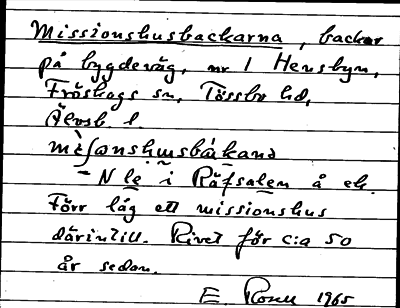 Missionshusbackarna, backar
på bygdeväg, nr 1 Hensbyn,
Fröskogs sn, Tössbo hd,
Älvsb. l.
– N le i Räfsalen å ek.
Förr låg ett missionshus
därintill. Rivet för c:a 50
år sedan.
E. 1965